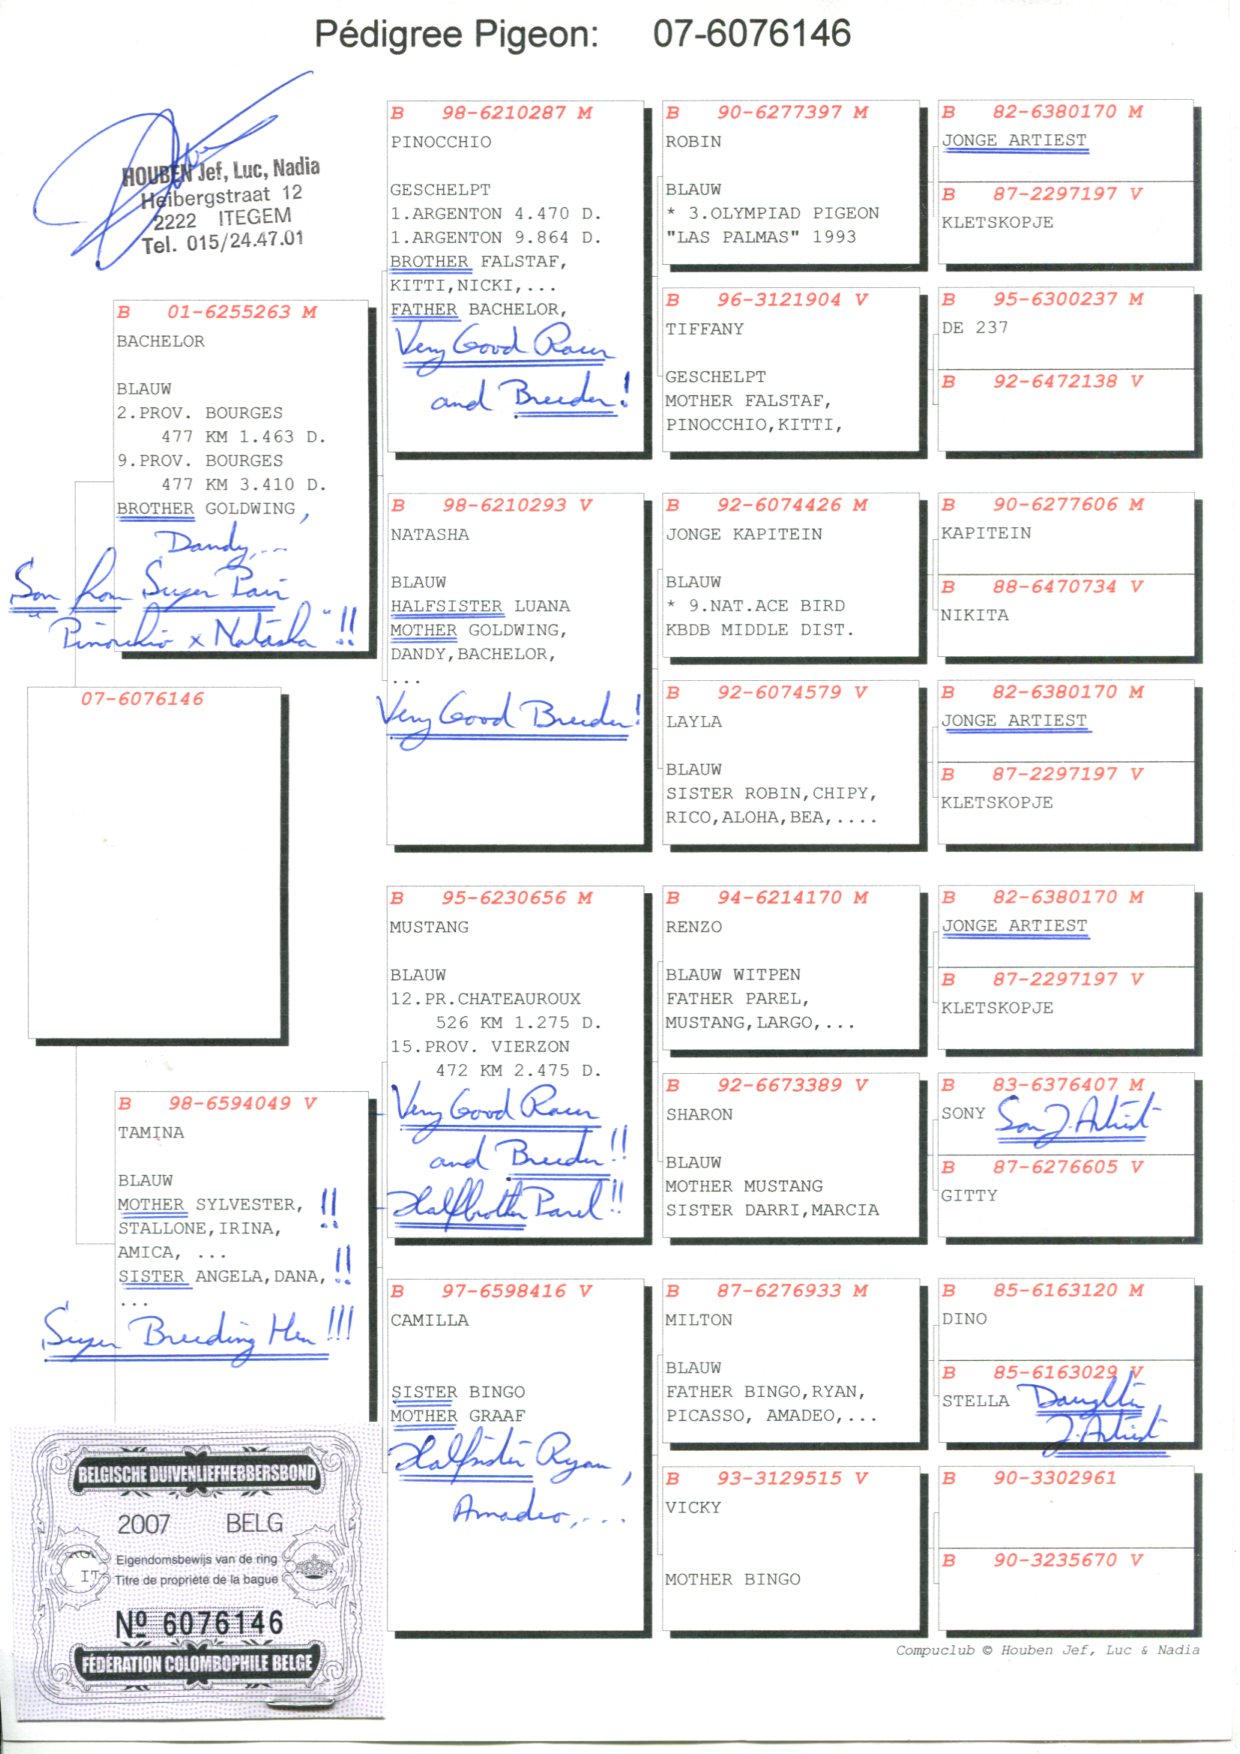 Pédigree Pigeon: 07-6076146
HOUBEN Jef, Luc, Nadia
Heibergstraat 12
2222 ITEGEM
Tel. 015/24.47.01
07-6076146
B 01-6255263 M
BACHELOR
BLAUW
2.PROV. BOURGES
477 KM 1.463 D.
9.PROV. BOURGES
477 KM 3.410 D.
BROTHER GOLDWING,
Dandy,...
Son from Super Pair
"Pinocchio x Natasha"!!
B 98-6594049 V
TAMINA
BLAUW
MOTHER SYLVESTER, !!
STALLONE,IRINA,
AMICA, ...
SISTER ANGELA,DANA, !!
...
Super Breeding Hen !!!
B 98-6210287 M
PINOCCHIO
GESCHELPT
1.ARGENTON 4.470 D.
1.ARGENTON 9.864 D.
BROTHER FALSTAF,
KITTI,NICKI,...
FATHER BACHELOR,
Very Good Racer
and Breeder!
B 98-6210293 V
NATASHA
BLAUW
HALFSISTER LUANA
MOTHER GOLDWING,
DANDY,BACHELOR,
...
Very Good Breeder!
B 95-6230656 M
MUSTANG
BLAUW
12.PR.CHATEAUROUX
526 KM 1.275 D.
15.PROV. VIERZON
472 KM 2.475 D.
Very Good Racer
and Breeder!!
Halfbrother Parel!!
B 97-6598416 V
CAMILLA
SISTER BINGO
MOTHER GRAAF
Halfsister Ryan,
Amadeo,...
B 90-6277397 M
ROBIN
BLAUW
* 3.OLYMPIAD PIGEON
"LAS PALMAS" 1993
B 96-3121904 V
TIFFANY
GESCHELPT
MOTHER FALSTAF,
PINOCCHIO,KITTI,
B 92-6074426 M
JONGE KAPITEIN
BLAUW
* 9.NAT.ACE BIRD
KBDB MIDDLE DIST.
B 92-6074579 V
LAYLA
BLAUW
SISTER ROBIN,CHIPY,
RICO,ALOHA,BEA,....
B 94-6214170 M
RENZO
BLAUW WITPEN
FATHER PAREL,
MUSTANG,LARGO,...
B 92-6673389 V
SHARON
BLAUW
MOTHER MUSTANG
SISTER DARRI,MARCIA
B 87-6276933 M
MILTON
BLAUW
FATHER BINGO,RYAN,
PICASSO, AMADEO,...
B 93-3129515 V
VICKY
MOTHER BINGO
B 82-6380170 M
JONGE ARTIEST
B 87-2297197 V
KLETSKOPJE
B 95-6300237 M
DE 237
B 92-6472138 V
B 90-6277606 M
KAPITEIN
B 88-6470734 V
NIKITA
B 82-6380170 M
JONGE ARTIEST
B 87-2297197 V
KLETSKOPJE
B 82-6380170 M
JONGE ARTIEST
B 87-2297197 V
KLETSKOPJE
B 83-6376407 M
SONY Son J. Artiest
B 87-6276605 V
GITTY
B 85-6163120 M
DINO
B 85-6163029 V
STELLA Daughter
J. Artiest
B 90-3302961
B 90-3235670 V
Compuclub © Houben Jef, Luc & Nadia
BELGISCHE DUIVENLIEFHEBBERSBOND
2007 BELG
Eigendomsbewijs van de ring
Titre de propriété de la bague
IT
Nº 6076146
FÉDÉRATION COLOMBOPHILE BELGE